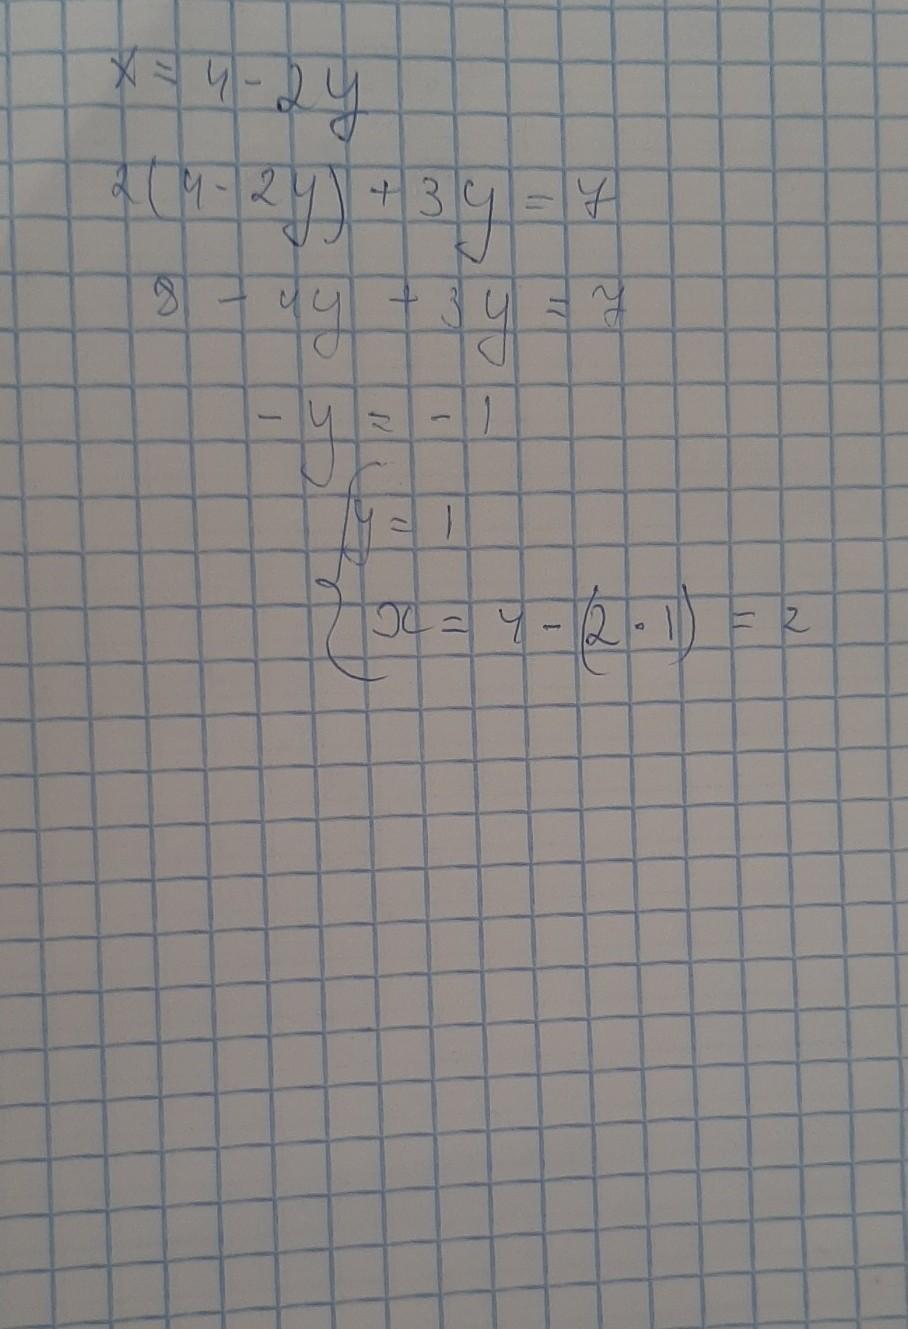 x = 4 - 2y
2(4 - 2y) + 3y = 7
8 - 4y + 3y = 7
- y = - 1
{ y = 1
x = 4 - (2 · 1) = 2